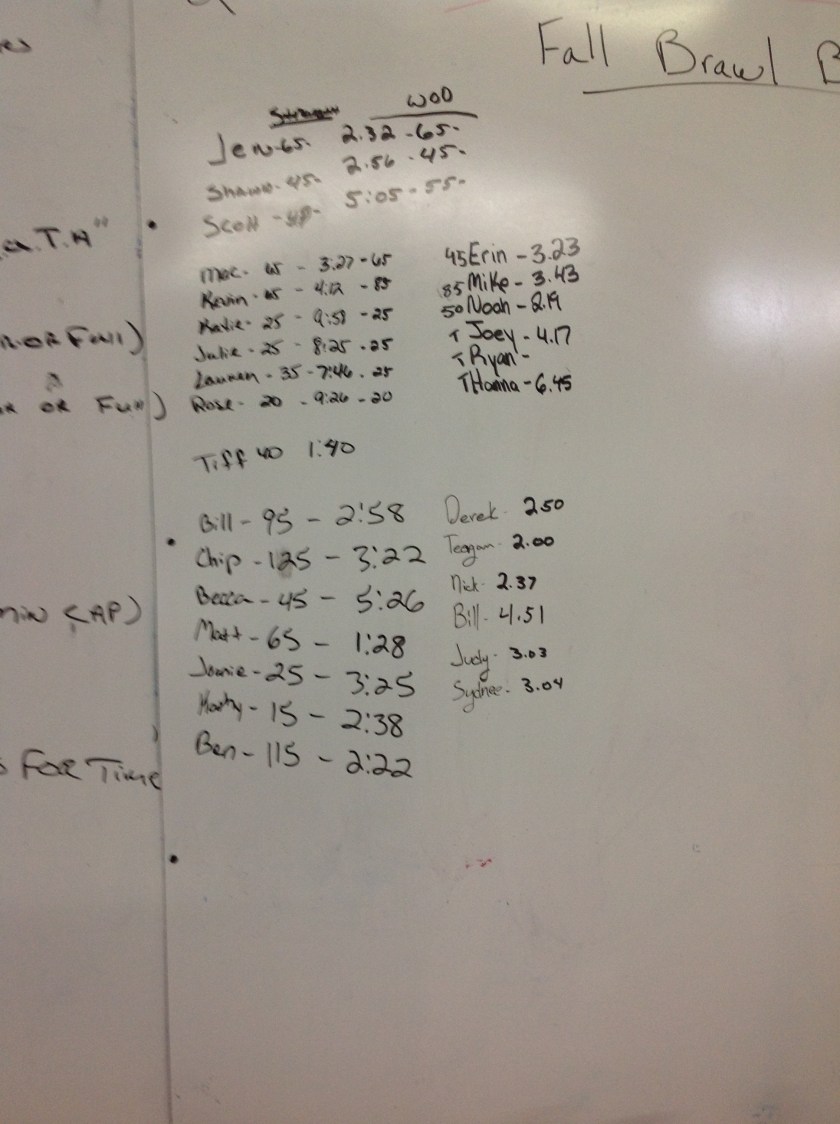 es
Fall Brawl B
Strength WOD
Jen-65- 2.32 -65-
Shawn-45- 2.56 -45-
Scott - 5:05 -55-
a.T.H"
Mac- 65 - 3:27-65
Kevin-65 - 4:12 -85
Katie- 25 - 9:59 -25
Julie - 25 - 8:25 -25
Lauren - 35 -7:46 -25
Rose- 20 - 9:26 -20
45 Erin - 3.23
85 Mike - 3.43
50 Noah - 2.19
T Joey - 4.17
T Ryan -
T Hanna - 6.45
OR Full)
OR Full)
Tiff 40 1:40
Bill - 95 - 2:58
Chip - 125 - 3:22
Becca - 45 - 5:26
Matt - 65 - 1:28
Jamie - 25 - 3:25
Marty - 15 - 2:38
Ben - 115 - 2:22
Derek- 2.50
Teagan- 2.00
Nick- 2.37
Bill- 4.51
Judy- 3.03
Sydnee- 3.04
min CAP)
s For Time